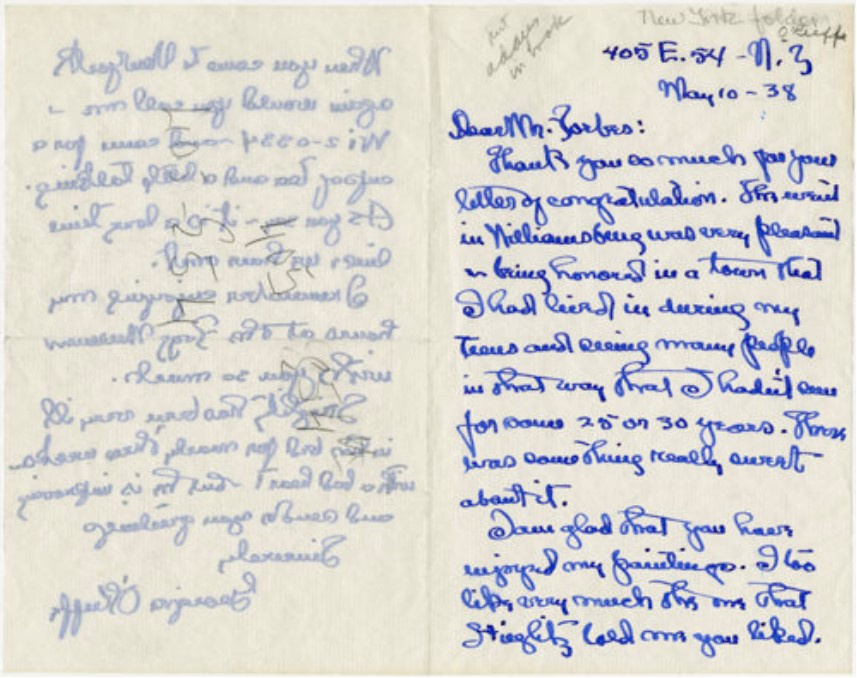 New York folder
O'Keeffe
put
address
in book
405 E. 54 - N.Y
May 10 - 38
Dear Mr. Forbes:
Thank you so much for your
letter of congratulation. The event
in Williamsburg was very pleasant
in being honored in a town that
I had lived in during my
teens and seeing many people
in that way that I hadn't seen
for some 25 or 30 years. There
was something really sweet
about it.
I am glad that you have
enjoyed my paintings. I too
like very much the one that
Stieglitz told me you liked.
When you come to New York
again would you call me -
Wi 2-0334 - and come for a
cup of tea and a little talking.
As you - it is a long time
since we have
I remember enjoying my
hours at the Fogg Museum
with you so much.
Stieglitz has been very ill
in bed for nearly three weeks -
a bad heart - but he is improving
and sends you greetings
Sincerely
Georgia O'Keeffe